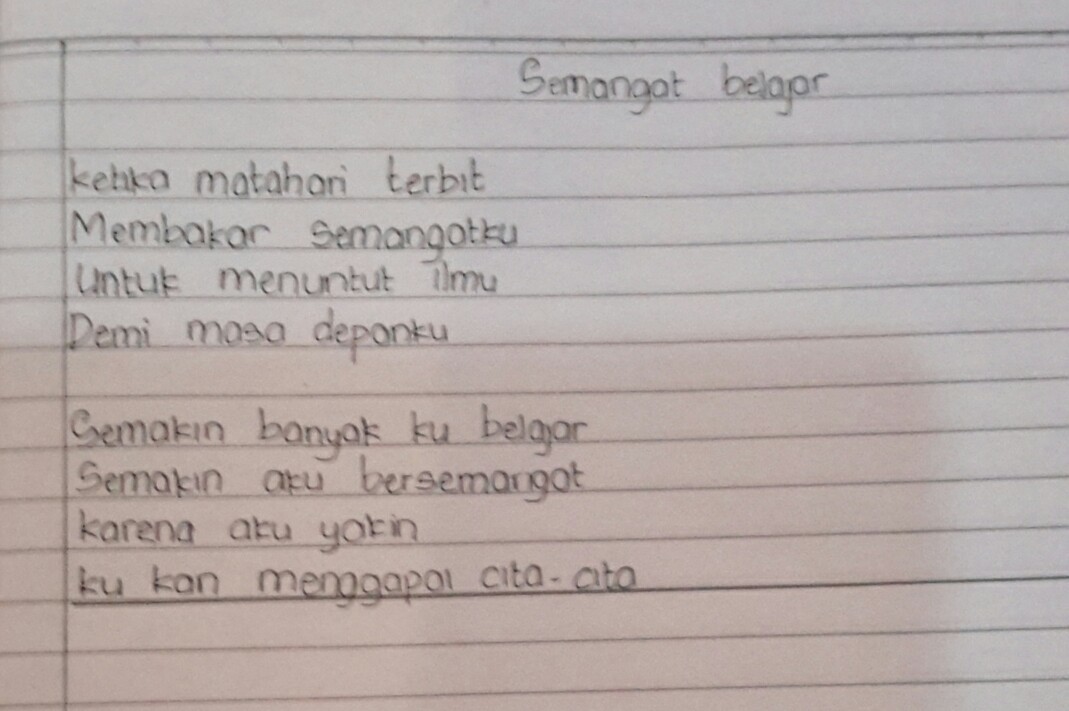 Semangat belajar
ketika matahari terbit
Membakar semangatku
Untuk menuntut ilmu
Demi masa depanku
Semakin banyak ku belajar
Semakin aku bersemangat
karena aku yakin
ku kan menggapai cita-cita